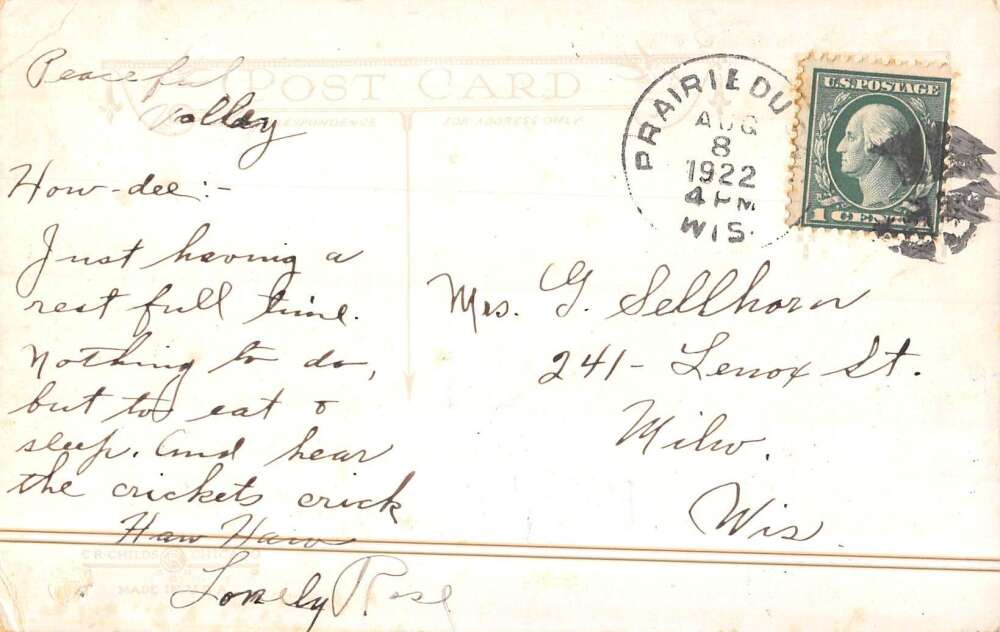 Peaceful
valley
How-dee:-
Just having a
rest full time.
Nothing to do,
but to eat &
sleep. And hear
the crickets crick
Haw Haw
Lonely Rose
POST CARD
CORRESPONDENCE
FOR ADDRESS ONLY
PRAIRIE DU
AUG
8
1922
4 PM
WIS.
U.S. POSTAGE
1 CENT
Mrs. G. Sellhorn
241- Lenox St.
Milw.
Wis
C.R. CHILDS CHICAGO
MADE IN